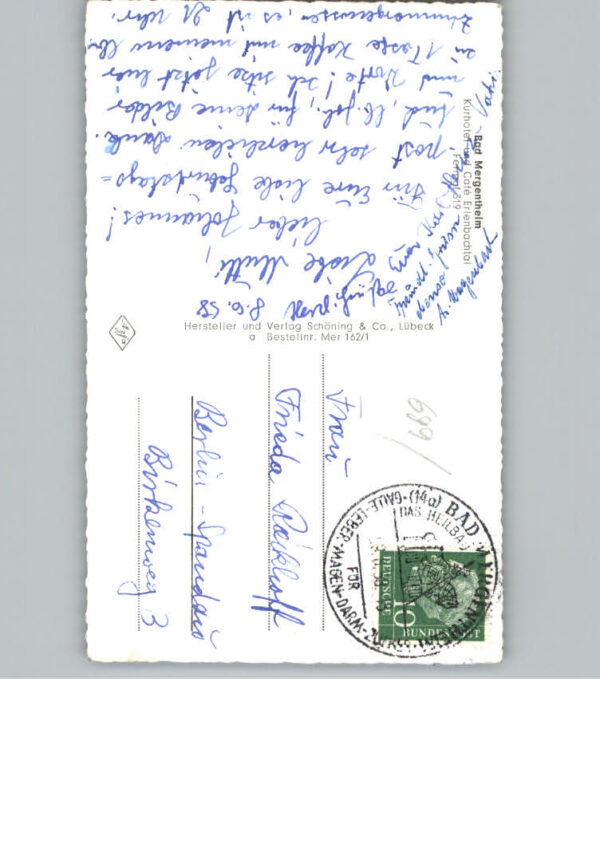 Bad Mergentheim
Kurhotel und Café Erlenbachtal
Fernruf 319
8.6.58
Liebe Mutti,
lieber Johannes!
Für Eure liebe Geburtstags=
post sehr herzlichen Dank.
Und, lb. Joh., für Deine Bilder
und Worte! Ich sitze jetzt hier
zu 1 Tasse Kaffee mit meinem lb.
es ist 21 Uhr.
Herzl.
Eure
Hersteller und Verlag Schöning & Co., Lübeck
a Bestellnr. Mer 162/1
Agfa
Frau
Frieda
Berlin - Spandau
Birkenweg 3
689
(14a) BAD MERGENTHEIM
DAS HEILBAD
FÜR
GALLE-LEBER-MAGEN-DARM-ZUCKER
10
DEUTSCHE
BUNDESPOST